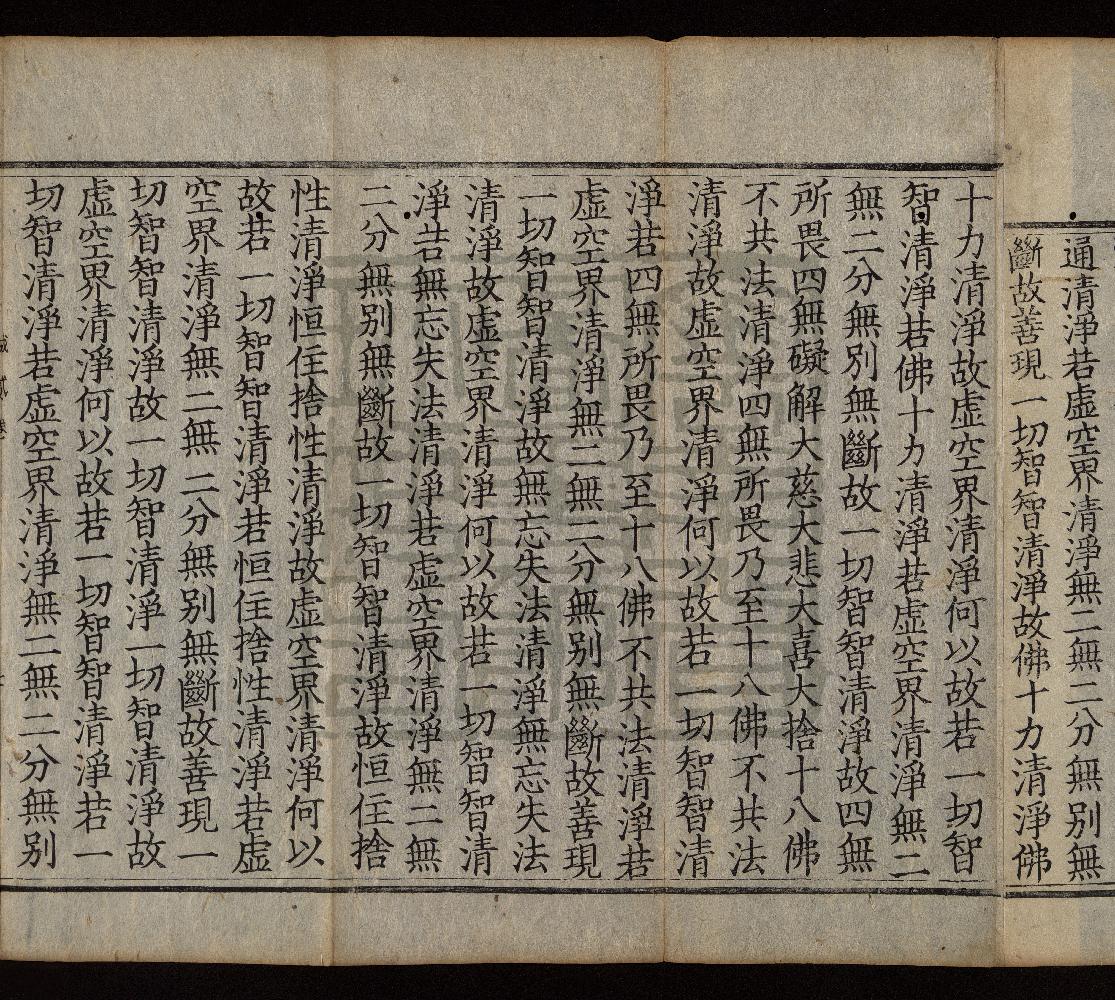 通清淨若虛空界清淨無二無二分無別無
斷故善現一切智智清淨故佛十力清淨佛
十力清淨故虛空界清淨何以故若一切智
智清淨若佛十力清淨若虛空界清淨無二
無二分無別無斷故一切智智清淨故四無
所畏四無礙解大慈大悲大喜大捨十八佛
不共法清淨四無所畏乃至十八佛不共法
清淨故虛空界清淨何以故若一切智智清
淨若四無所畏乃至十八佛不共法清淨若
虛空界清淨無二無二分無別無斷故善現
一切智智清淨故無忘失法清淨無忘失法
清淨故虛空界清淨何以故若一切智智清
淨若無忘失法清淨若虛空界清淨無二無
二分無別無斷故一切智智清淨故恒住捨
性清淨恒住捨性清淨故虛空界清淨何以
故若一切智智清淨若恒住捨性清淨若虛
空界清淨無二無二分無別無斷故善現一
切智智清淨故一切智清淨一切智清淨故
虛空界清淨何以故若一切智智清淨若一
切智清淨若虛空界清淨無二無二分無別